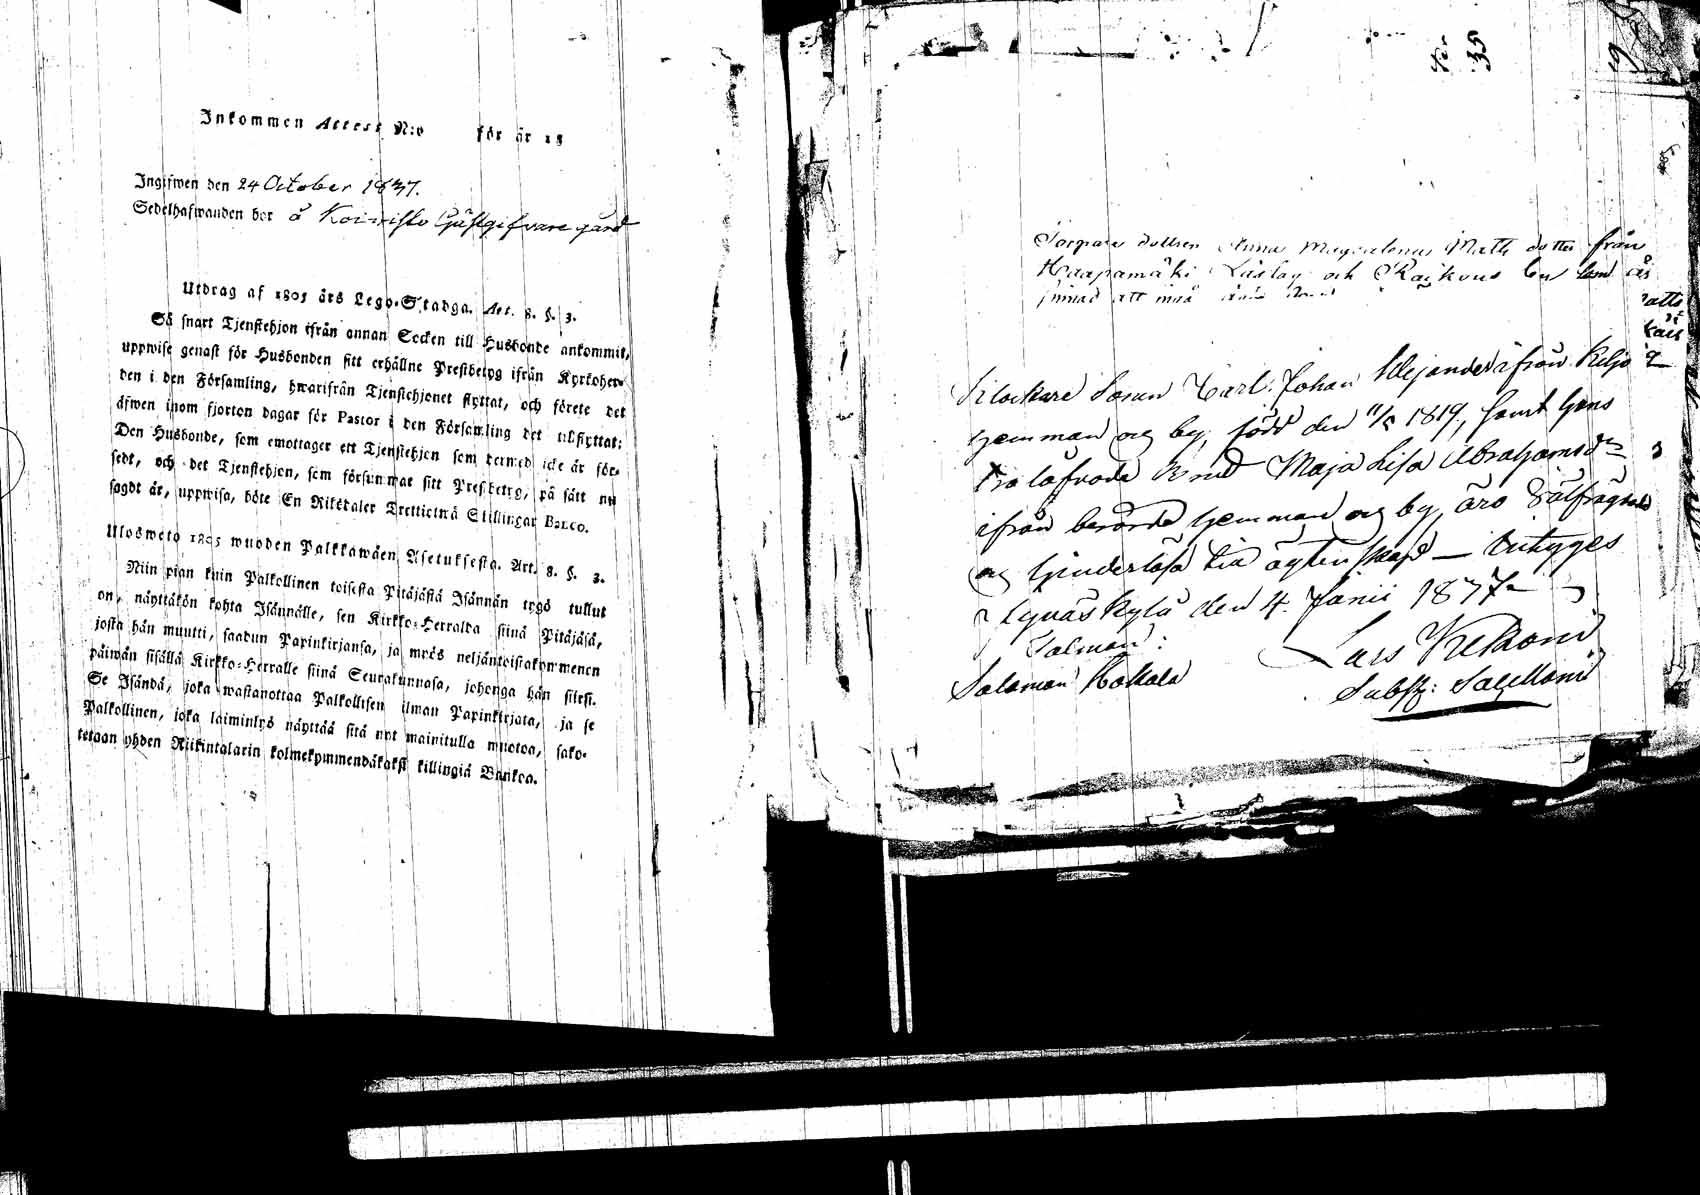 Inkommen Attest N:o för år 18
Ingifwen den 24 October 1837.
Sedelhafwanden bor å Koivisto Gästgifvare gård
Utdrag af 1805 års Lego-Stadga. Art. 8. §. 3.
Så snart Tjenstehjon ifrån annan Socken till Husbonde ankommit,
uppwise genast för Husbonden sitt erhållne Prestbetyg ifrån Kyrkoher-
den i den Församling, hwarifrån Tjenstehjonet flyttat, och förete det
äfwen inom fjorton dagar för Pastor i den Församling det tillflyttat:
Den Husbonde, som emottager ett Tjenstehjon som dermed icke är för-
sedt, och det Tjenstehjon, som försummar sitt Prestbetyg, på sätt nu
sagdt är, uppwisa, böte En Riksdaler Trettiotwå Skillingar Banco.
Ulosweto 1805 wuoden Palkkawäen Asetuksesta. Art. 8. §. 3.
Niin pian kuin Palkollinen toisesta Pitäjästä Isännän tygö tullut
on, näyttäkön kohta Isännälle, sen Kirkko-Herralda siinä Pitäjäsä,
josta hän muutti, saadun Papinkirjansa, ja myös neljäntoistakymmenen
päiwän sisällä Kirkko-Herralle siinä Seurakunnasa, johonga hän siirsi.
Se Isändä, joka wastanottaa Palkollisen ilman Papinkirjata, ja se
Palkollinen, joka laiminlyö näyttää sitä nyt mainitulla muotoa, sako-
tetaan yhden Riikintalarin kolmekymmendäkaksi killingiä Bankoa.
35
19
Torpare dottren Anna Magdalena Matts dotter från
Haapamäki och by som är
att
Klockare Sonen Carl Johan Alejander ifrån Keljo
hemman og by, född den 11/5 1819, samt hans
trolofvade Brud Maja Lisa Abrahamsdr
ifrån berörde hemman og by, äro
og hinderlösa til ägtenskap — bitygges
Jyväskylä den 4. Junii 1837
Salomon Kokkala Lars